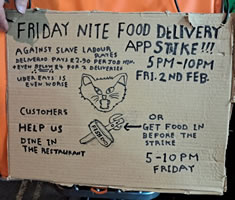 FRIDAY NITE FOOD DELIVERY
APP STRIKE!!!
AGAINST SLAVE LABOUR
RATES
DELIVEROO PAYS £2.90 PER JOB NOW
EVEN BELOW £4 FOR 2 DELIVERIES
UBER EATS IS
EVEN WORSE
5PM-10PM
FRI. 2ND FEB.
CUSTOMERS
HELP US
DINE IN
THE RESTAURANT
OR
GET FOOD IN
BEFORE THE
STRIKE
5-10PM
FRIDAY